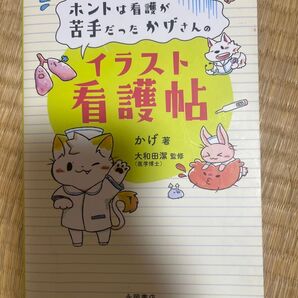 ホントは看護が
苦手だったかげさんの
イラスト
看護帖
かげ 著
大和田潔 監修
(医学博士)
永岡書店